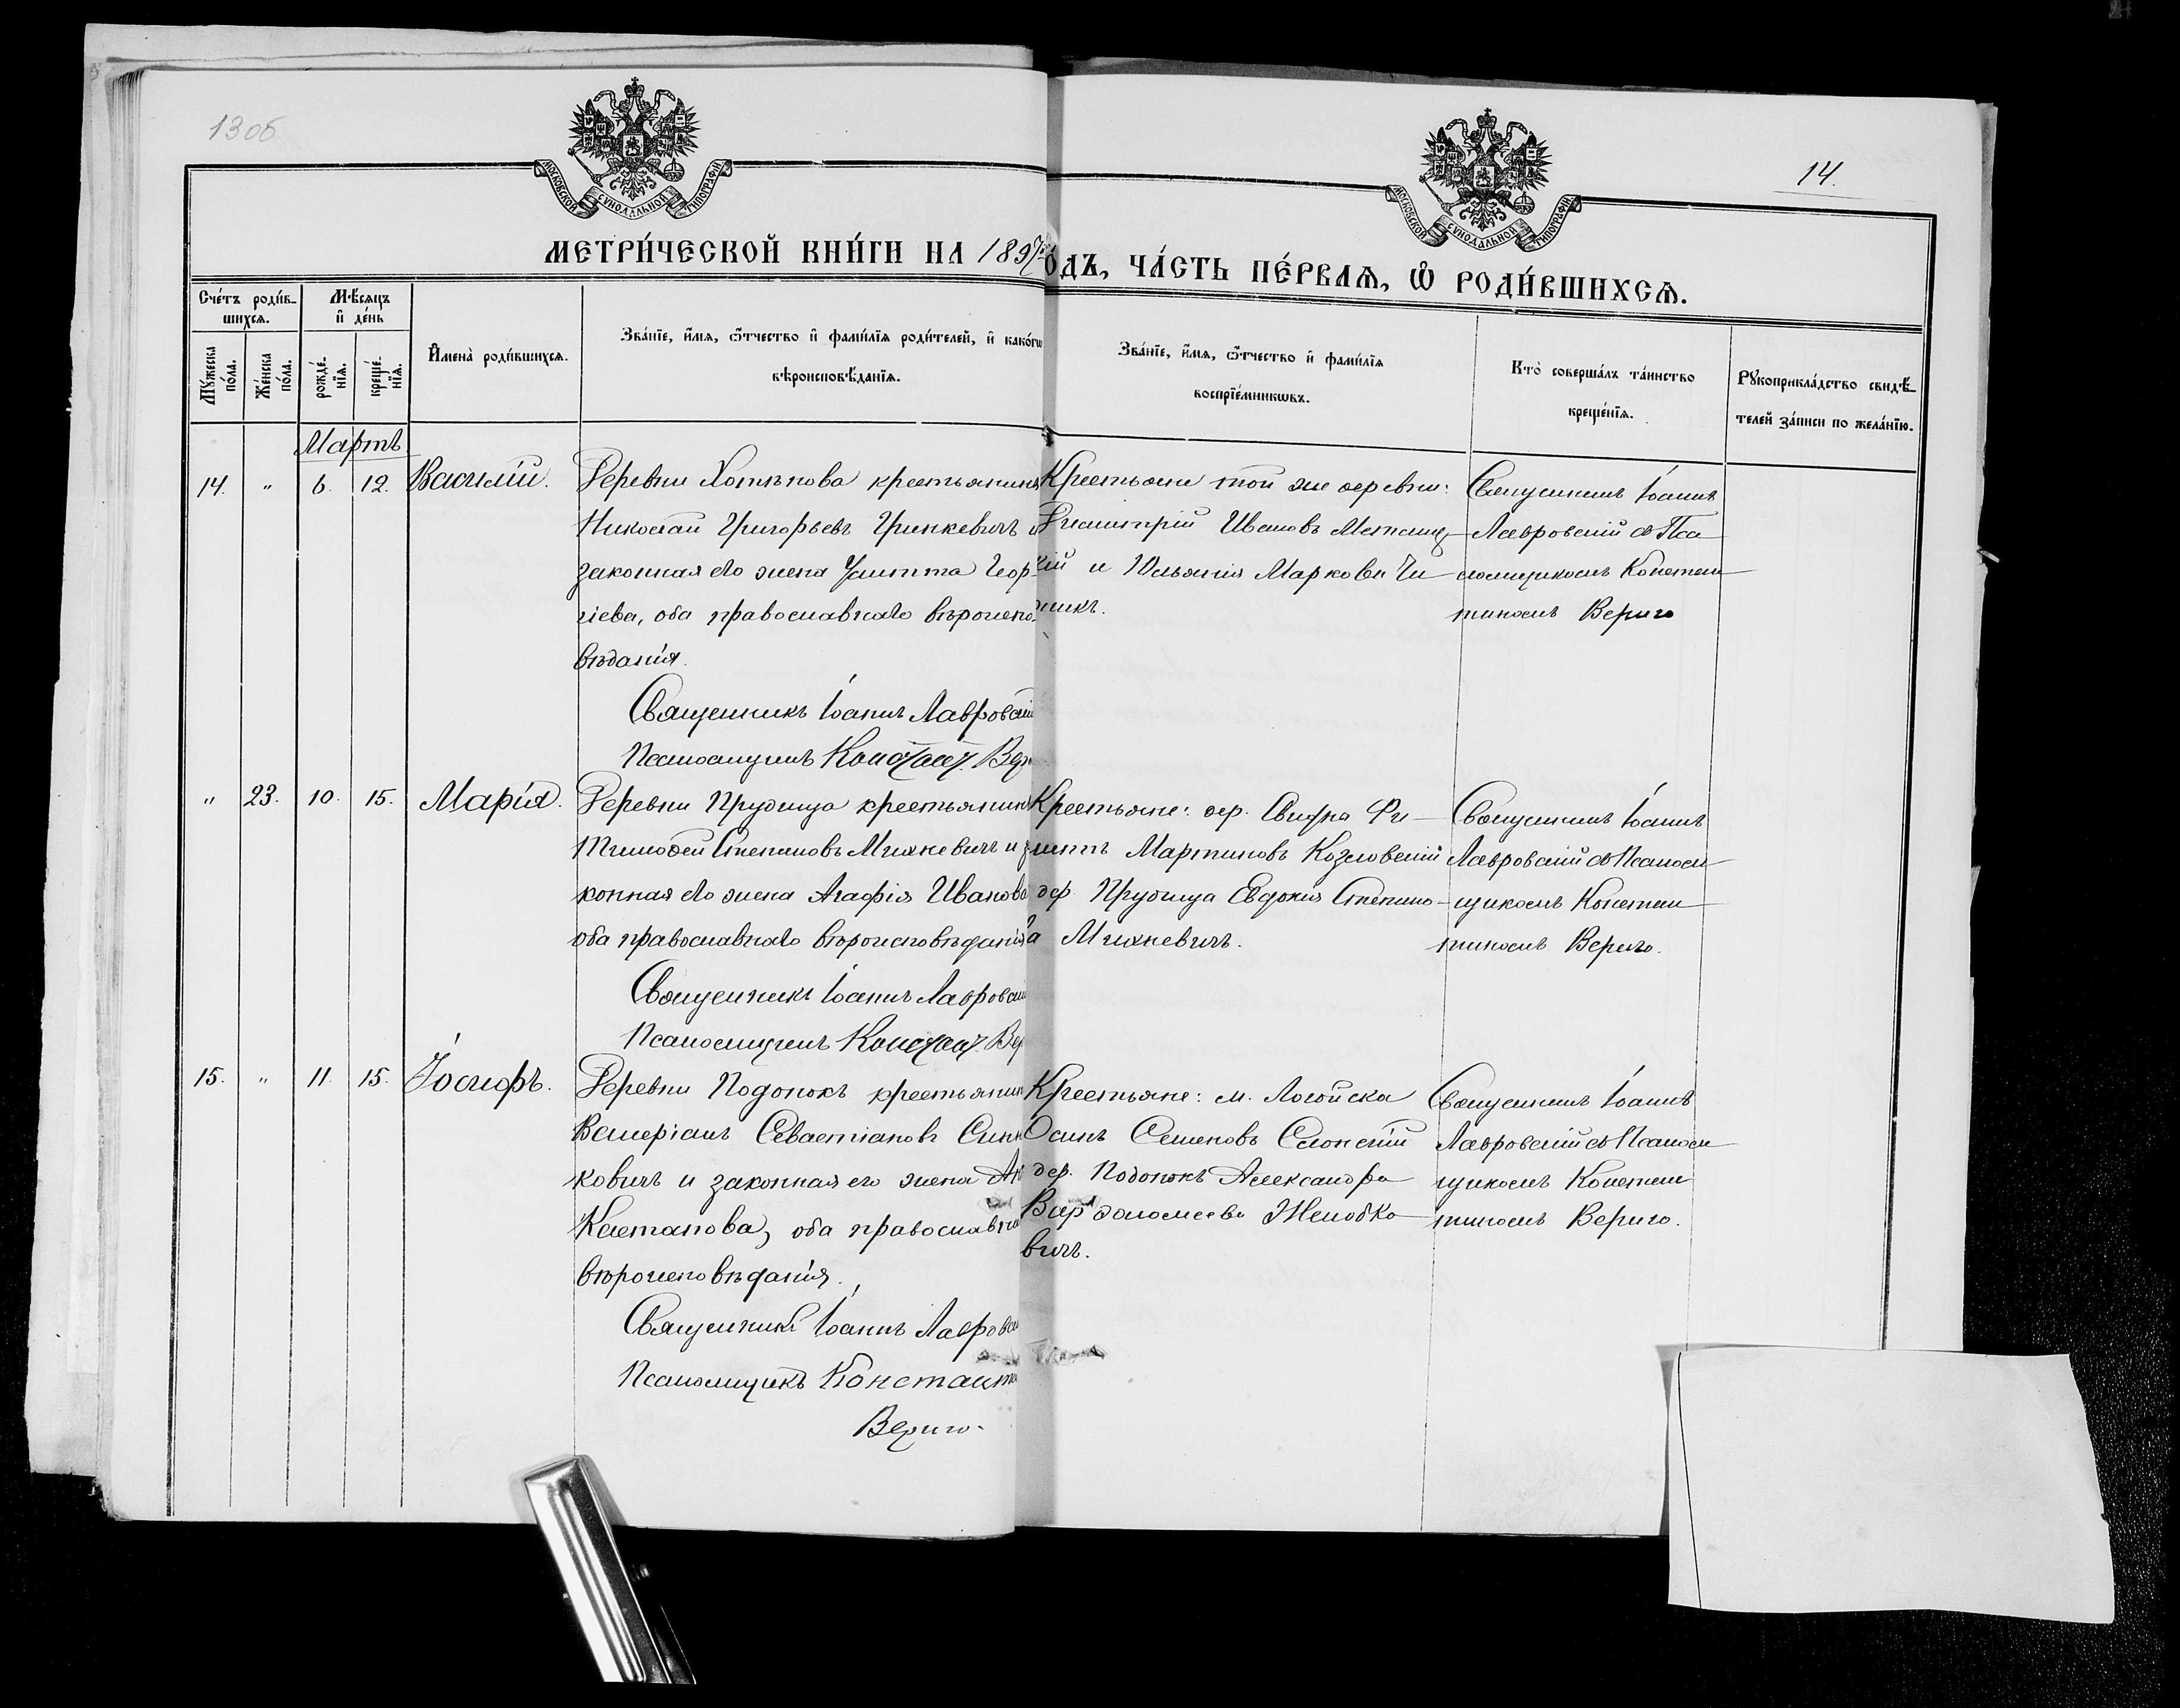 13 об
14.
МОСКОВСКОЙ СѴНОДАЛЬНОЙ ТИПОГРАФІИ
МОСКОВСКОЙ СѴНОДАЛЬНОЙ ТИПОГРАФІИ
МЕТРИ́ЧЕСКОЙ КНИ́ГИ НА 1897
ОДЪ, ЧА́СТЬ ПЕ́РВАЯ, Ѽ РОДИ́ВШИХСЯ.
Сче́тъ роди́в-
шихся.
Мꙋ́жеска по́ла.
Же́нска по́ла.
Мѣ́сяцъ
и҆ де́нь
рожде́-
нїя.
креще́-
нїя.
И҆мена̀ роди́вшихся.
Зва́нїе, и҆́мя, ѻ҆́тчество и҆ фами́лїя роди́телей, и҆ како́гѡ
вѣроисповѣ́данїя.
Зва́нїе, и҆́мя, ѻ҆́тчество и҆ фами́лїя
воспрїе́мникѡвъ.
Кто̀ соверша́лъ та́инство
креще́нїя.
Рꙋкоприкла́дство свидѣ́-
телей за́писи по жела́нїю.
Мартъ
14. " 6. 12. Василій.
Деревни Хотѣнова крестьянинъ
Николай Григорьевъ Гринкевичъ и
законная его жена Геор-
гіева, оба православнаго вѣроиспо-
вѣданія.
Священникъ Іоаннъ Лавровскій
Псаломщикъ Констант. Вер
Крестьяне той же деревни:
Димитрій Ивановъ
кій и Юльянія Маркова
никъ.
Священникъ Іоаннъ
Лавровскій съ Пса
ломщикомъ Констан
тиномъ Вериго
" 23. 10. 15. Марія.
Деревни Прудища крестьянинъ
Тимофей Степановъ Михневичъ и за
конная его жена Агафія Иванова
оба православнаго вѣроисповѣданія
Священникъ Іоаннъ Лавровскій
Псаломщикъ Констант. Вер
Крестьяне: дер. Фи-
липпъ Мартиновъ Козловскій
дер. Прудища Евдокія Степано-
ва Михневичъ.
Священникъ Іоаннъ
Лавровскій съ Псалом
щикомъ Констан
тиномъ Вериго.
15. " 11. 15. Іосифъ.
Деревни Подонокъ крестьянин
Валеріанъ Севастіановъ Синь
ковичъ и законная его жена
Каетанова, оба православна
вѣроисповѣданія.
Священникъ Іоаннъ Лавровск
Псаломщикъ Константи
Вериго.
Крестьяне: м. Логойска
Осипъ Семеновъ
дер. Подонокъ Александра
Варфоломеева Желобко
вичъ.
Священникъ Іоаннъ
Лавровскій съ Псалом
щикомъ Констан
тиномъ Вериго.